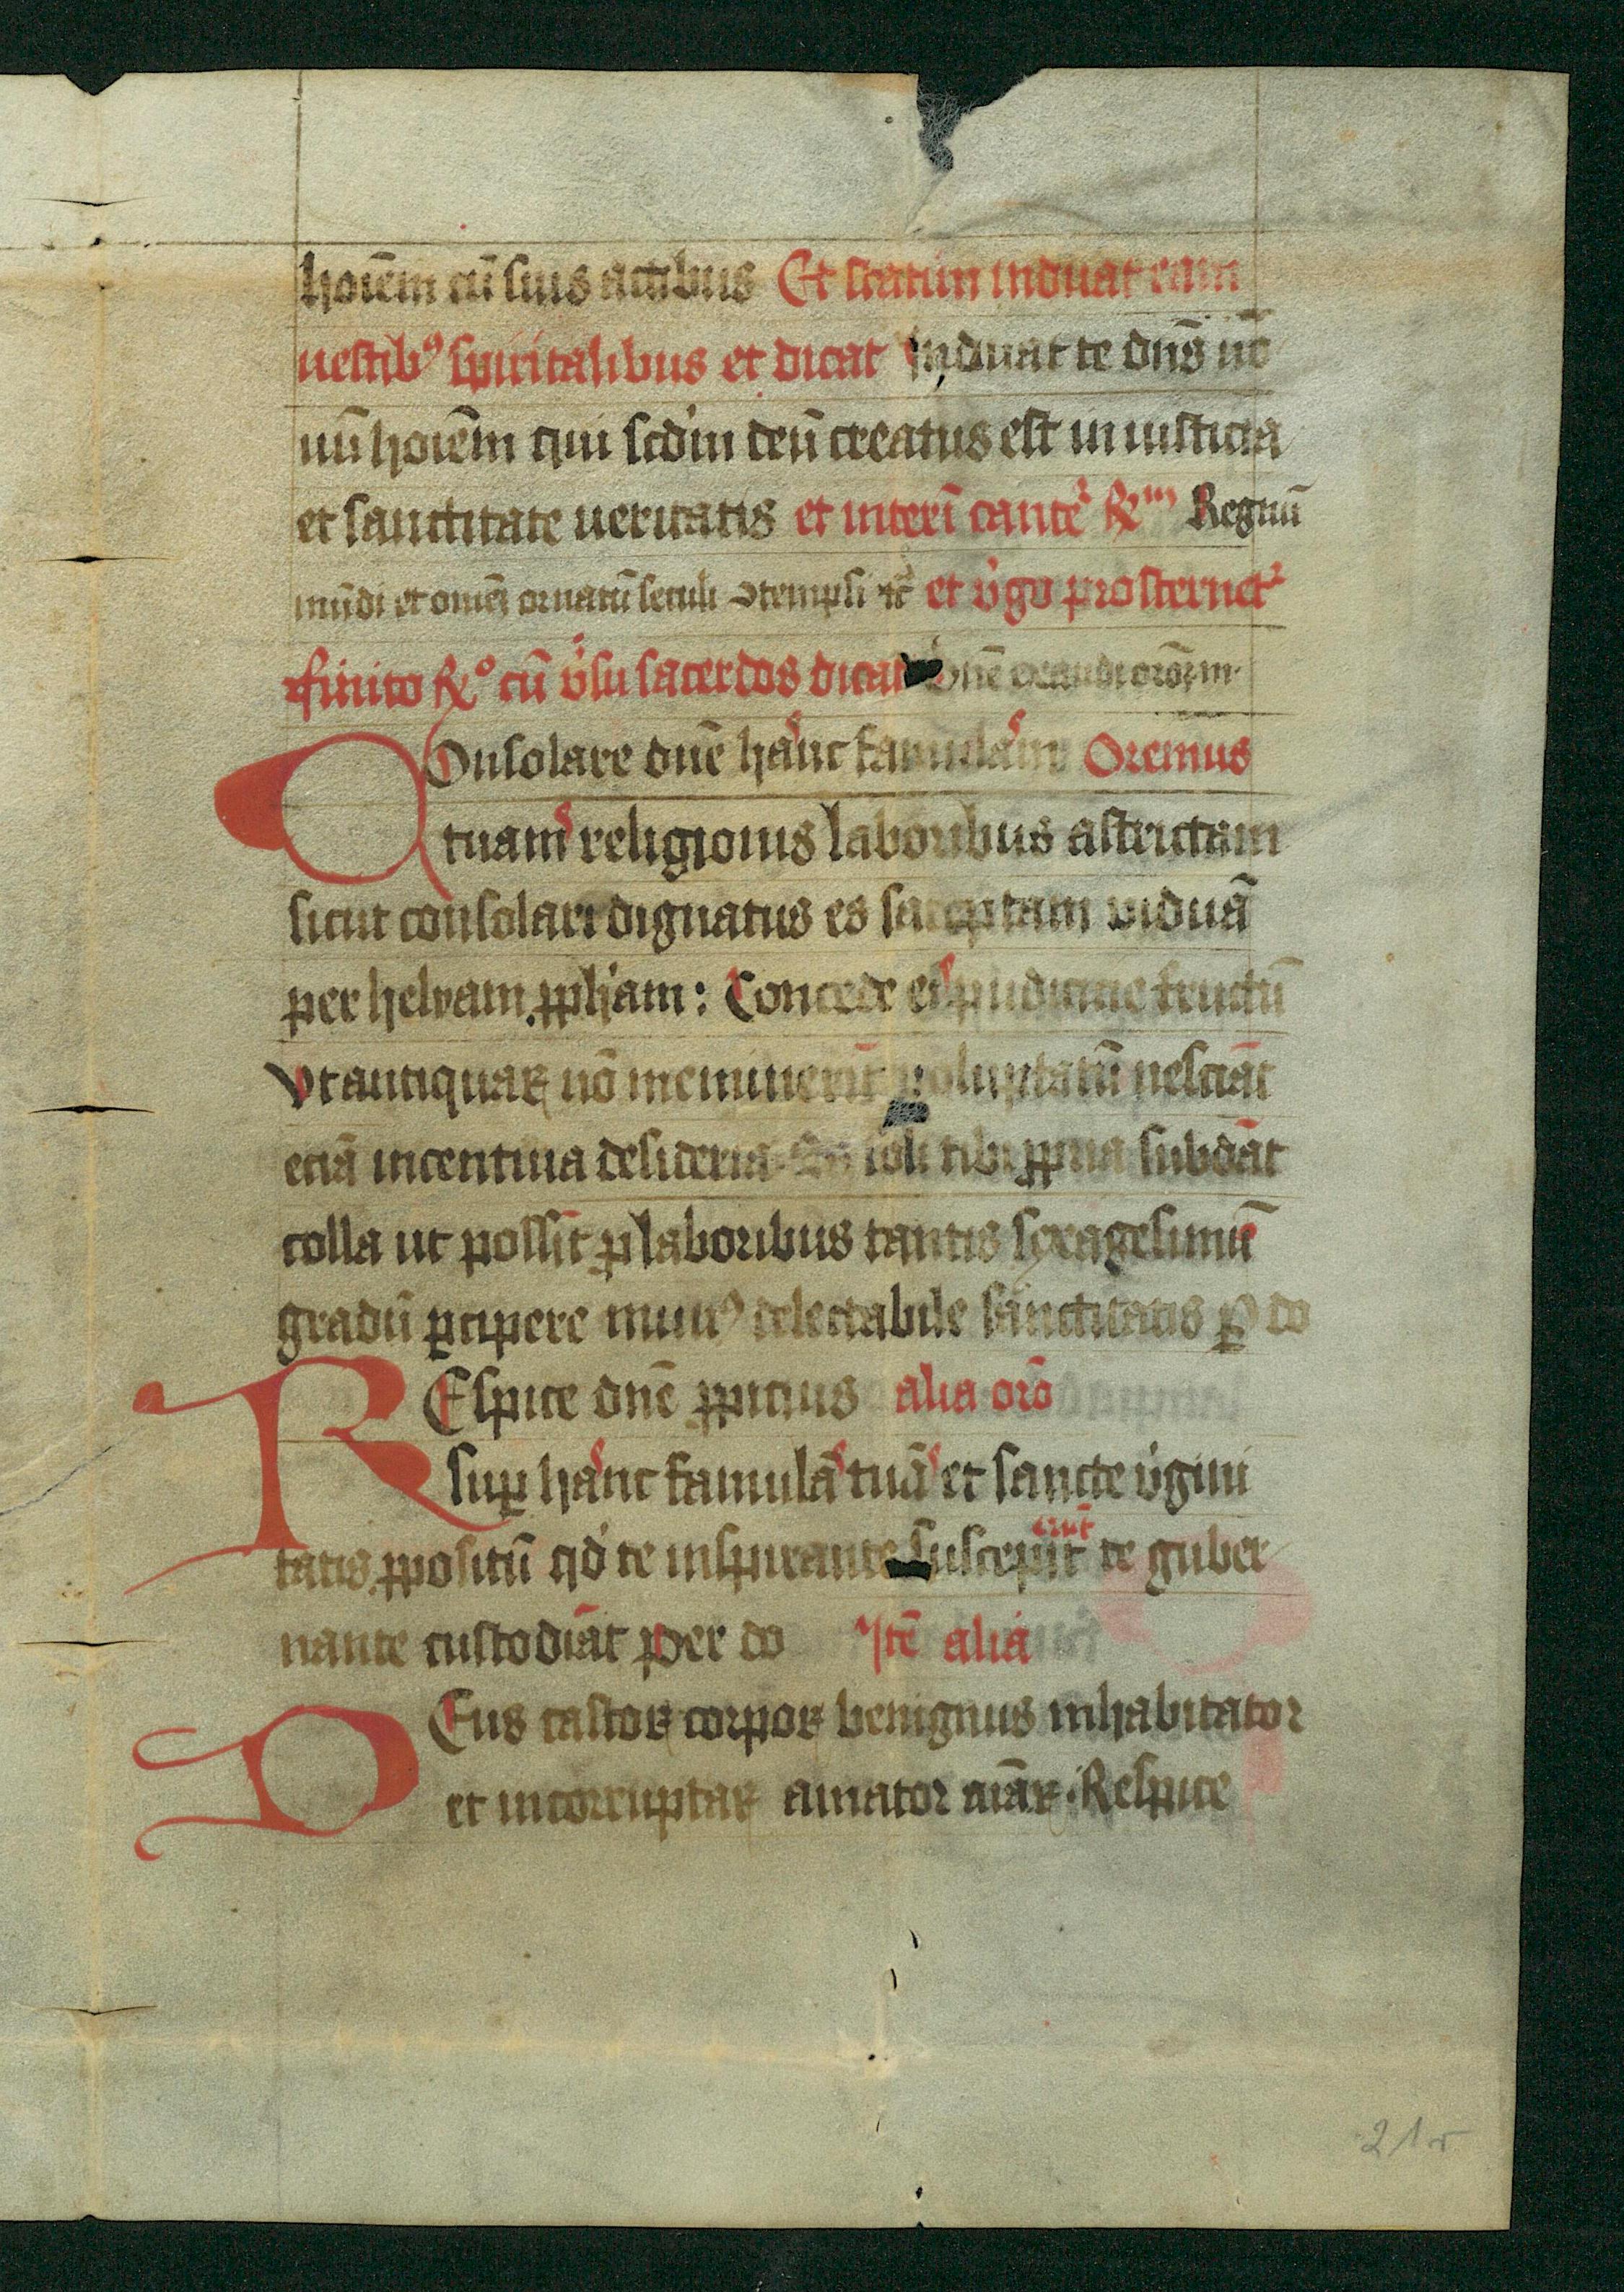 hoiē͞m cū suis actibus Et statim induat eam
uestibꝰ spiritalibus et dicat Induat te dn̄s no
uū hoiēm qui scd'm deū creatus est in iusticia
et sanctitate ueritatis et interī cantet᷑ ꝶm Regnū
mūdi et omnē ornatū seculi ↄtempsi ⁊c̄ et v̓go prosternet᷑
finito ꝶo cū v̓su sacerdos dicat Dn̄e exaudi orōꝫ m
Onsolare dn̄e hanc famulam Oremus
tuam religionis laboribus astrictam
sicut consolari dignatus es sareptam viduā
per helyam ꝓph'am : Concede ei pudicicie fructū
vt antiquaꝝ nō meminerīt voluptatū nesciāt
eciā incentiua desideria. Et soli tibi ꝓpria subdāt
colla ut possīt ꝓ laboribus tantis sexagesimū
gradū ꝑcipere munꝰ delectabile sanctitatis ꝑ do
REspice dn̄e ꝓpicius alia orō
suꝑ hanc famulā tuā et sancte v̓gini
tatis ꝓpositū qd' te inspirante suscepit erūt te guber
nante custodiāt per do Itē alia
DEus castoꝝ corpoꝝ benignus inhabitator
et incorruptaꝝ amator aīaꝝ . Respice
21r